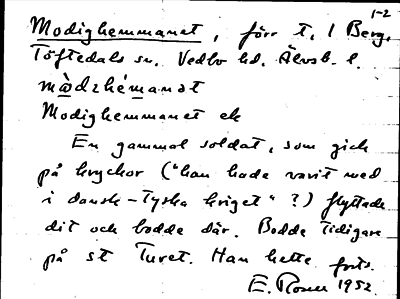 1-2
Modighemmanet, förr t. 1 Berg,
Töftedals sn. Vedbo hd. Älvsb. l.
mὰdzhémanət
Modighemmanet ek
En gammal soldat, som gick
på kryckor ("han hade varit med
i dansk-tyska kriget" ?) flyttade
dit och bodde där. Bodde tidigare
på st Turet. Han hette forts.
E. Rosen 1952